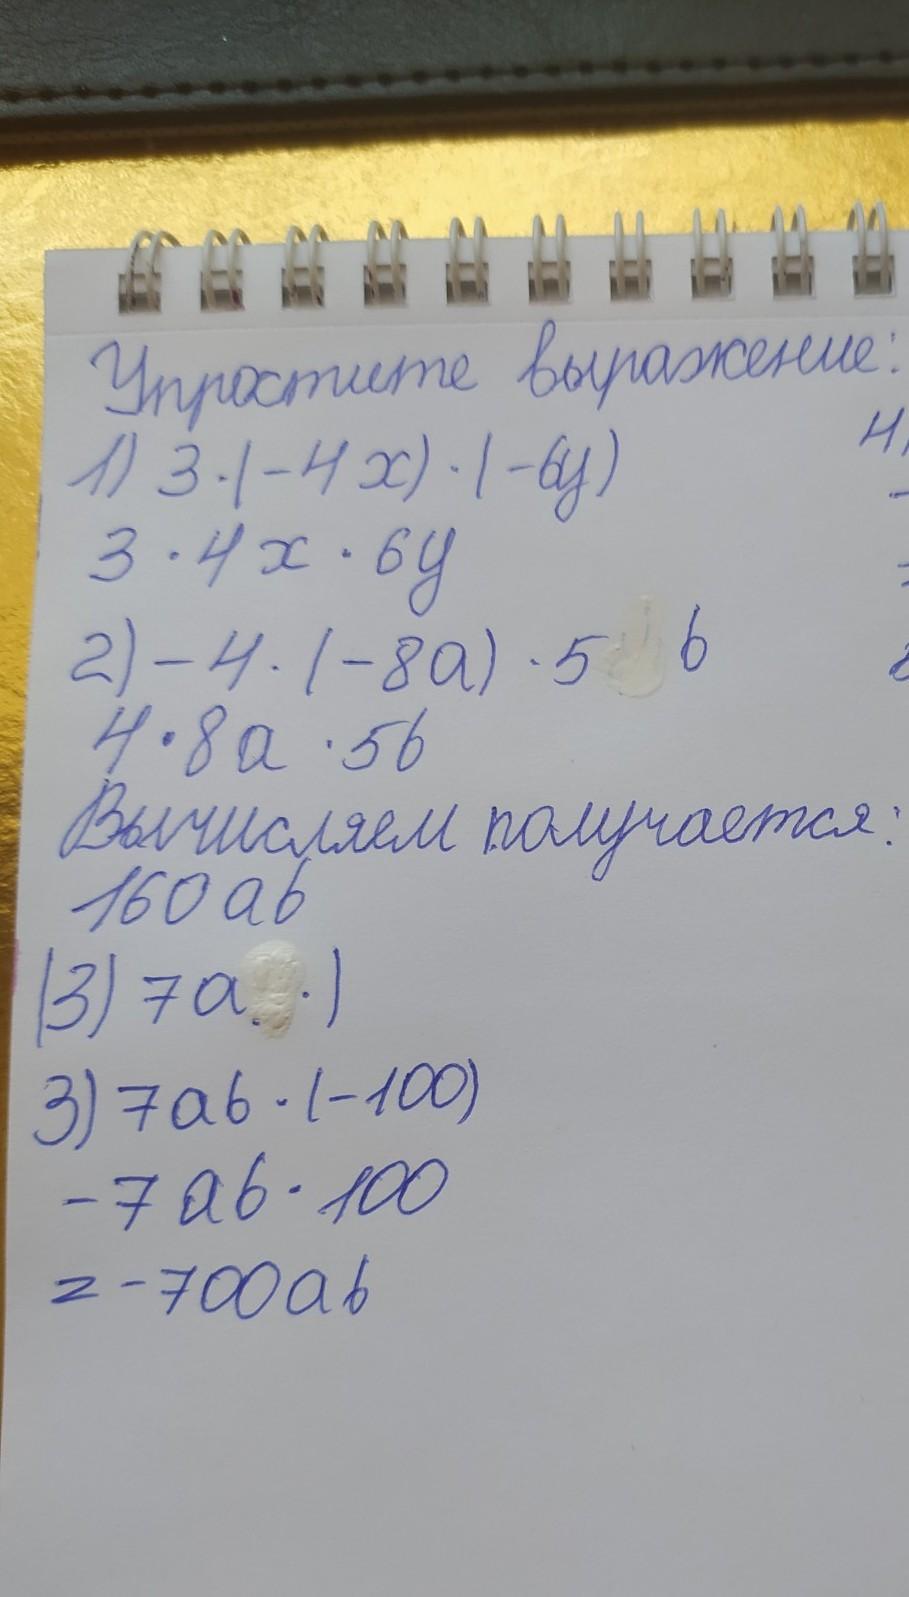 Упростите выражение:
1) 3·(-4x)·(-6y)
3·4x·6y
2) -4·(-8a)·5 b
4·8a·5b
Вычисляем получается:
160ab
(3) 7a ·)
3) 7ab·(-100)
-7ab·100
= -700ab
4)